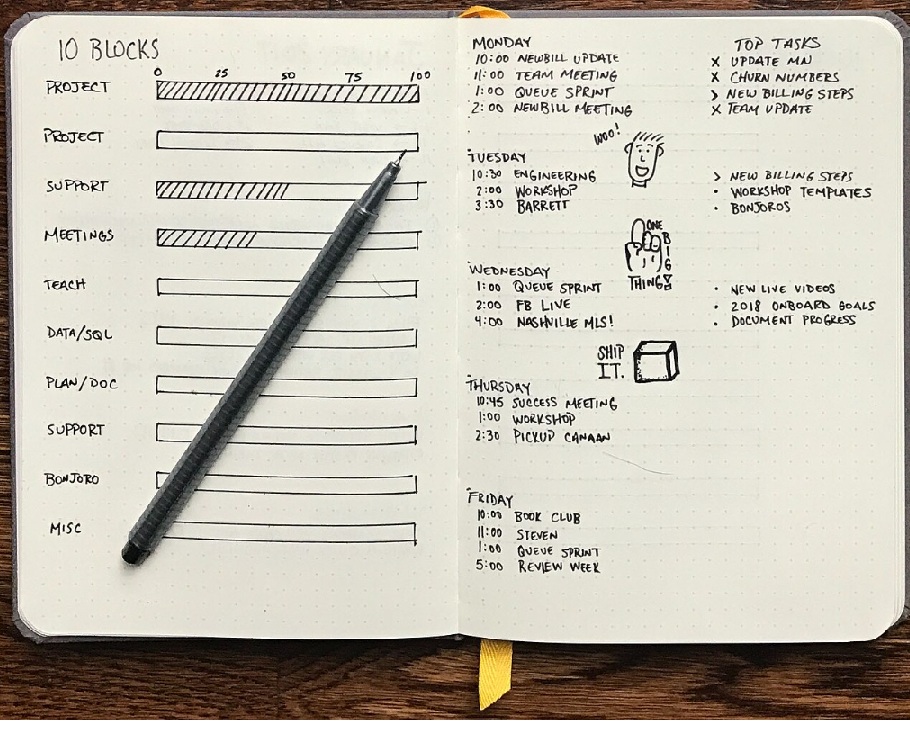 10 BLOCKS
0 25 50 75 100
PROJECT
PROJECT
SUPPORT
MEETINGS
TEACH
DATA/SQL
PLAN/DOC
SUPPORT
BONJORO
MISC
MONDAY
10:00 NEWBILL UPDATE
11:00 TEAM MEETING
1:00 QUEUE SPRINT
2:00 NEWBILL MEETING
TOP TASKS
X UPDATE MN
X CHURN NUMBERS
> NEW BILLING STEPS
X TEAM UPDATE
WOO!
TUESDAY
10:30 ENGINEERING
2:00 WORKSHOP
3:30 BARRETT
> NEW BILLING STEPS
• WORKSHOP TEMPLATES
• BONJOROS
ONE
BIG
THING!
WEDNESDAY
1:00 QUEUE SPRINT
2:00 FB LIVE
4:00 NASHVILLE MLS!
• NEW LIVE VIDEOS
• 2018 ONBOARD GOALS
• DOCUMENT PROGRESS
SHIP
IT.
THURSDAY
10:45 SUCCESS MEETING
1:00 WORKSHOP
2:30 PICKUP CANAAN
FRIDAY
10:00 BOOK CLUB
11:00 STEVEN
1:00 QUEUE SPRINT
5:00 REVIEW WEEK